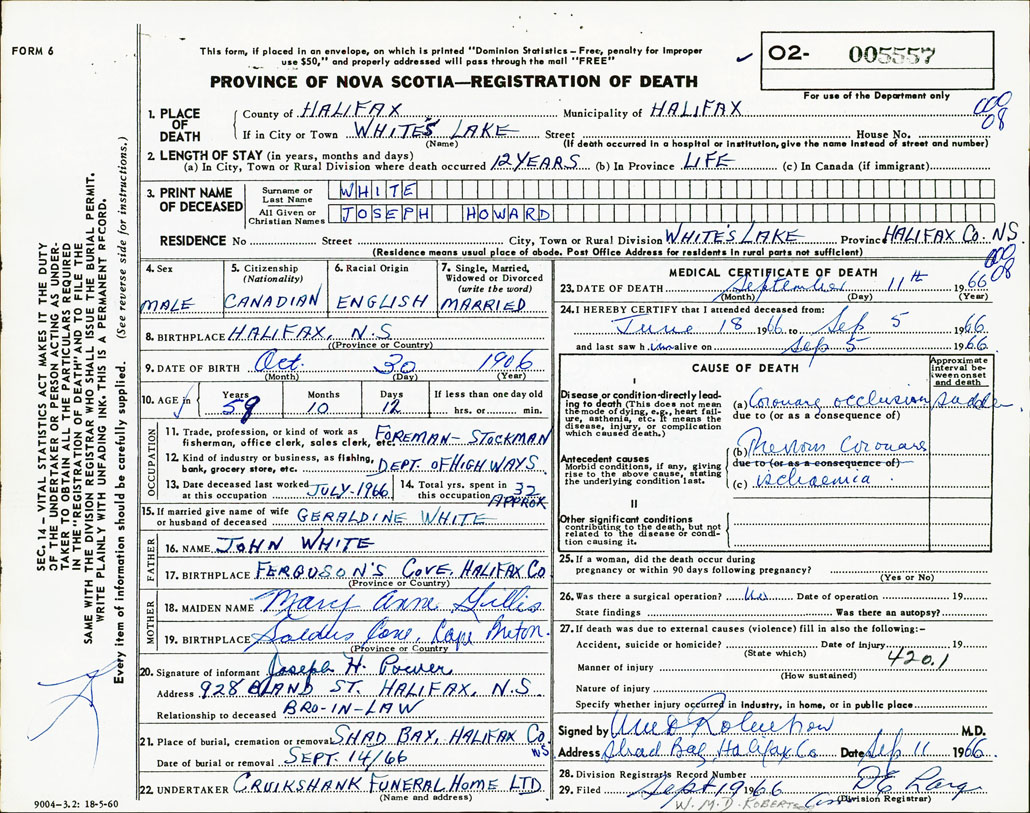 FORM 6
This form, if placed in an envelope, on which is printed "Dominion Statistics – Free, penalty for improper
use $50," and properly addressed will pass through the mail "FREE"
PROVINCE OF NOVA SCOTIA—REGISTRATION OF DEATH
O2- 005557
For use of the Department only
000
08
1. PLACE OF DEATH
County of HALIFAX Municipality of HALIFAX
If in City or Town WHITE'S LAKE Street House No.
(Name) (If death occurred in a hospital or institution, give the name instead of street and number)
2. LENGTH OF STAY (in years, months and days)
(a) In City, Town or Rural Division where death occurred 12 YEARS (b) In Province LIFE (c) In Canada (if immigrant)
3. PRINT NAME OF DECEASED
Surname or Last Name WHITE
All Given or Christian Names JOSEPH HOWARD
RESIDENCE No Street City, Town or Rural Division WHITE'S LAKE Province HALIFAX Co. N.S.
(Residence means usual place of abode. Post Office Address for residents in rural parts not sufficient)
000
08
4. Sex
MALE
5. Citizenship (Nationality)
CANADIAN
6. Racial Origin
ENGLISH
7. Single, Married, Widowed or Divorced (write the word)
MARRIED
8. BIRTHPLACE HALIFAX, N.S
(Province or Country)
9. DATE OF BIRTH Oct. 30 1906
(Month) (Day) (Year)
10. AGE in Years 59 Months 10 Days 12 If less than one day old hrs. or min.
OCCUPATION
11. Trade, profession, or kind of work as
fisherman, office clerk, sales clerk, etc. FOREMAN - STOCKMAN
12. Kind of industry or business, as fishing,
bank, grocery store, etc. DEPT. OF HIGHWAYS.
13. Date deceased last worked at this occupation JULY-1966
14. Total yrs. spent in this occupation 32 APPROX
15. If married give name of wife or husband of deceased GERALDINE WHITE
FATHER
16. NAME JOHN WHITE
17. BIRTHPLACE FERGUSON'S COVE, HALIFAX CO
(Province or Country)
MOTHER
18. MAIDEN NAME Mary Anne Gillis
19. BIRTHPLACE Cove, Cape Breton.
(Province or Country)
20. Signature of informant Joseph H. Power
Address 928 BLAND ST. HALIFAX, N.S
Relationship to deceased BRO-IN-LAW
21. Place of burial, cremation or removal SHAD BAY, HALIFAX Co NS
Date of burial or removal SEPT. 14/66
22. UNDERTAKER CRUIKSHANK FUNERAL HOME LTD.
(Name and address)
MEDICAL CERTIFICATE OF DEATH
23. DATE OF DEATH September 11th 1966
(Month) (Day) (Year)
24. I HEREBY CERTIFY that I attended deceased from:
June 18 1966 to Sep 5 1966
and last saw him alive on Sep 5 1966
CAUSE OF DEATH
Approximate interval between onset and death
I
Disease or condition directly leading to death (This does not mean the mode of dying, e.g., heart failure, asthenia, etc. It means the disease, injury, or complication which caused death.)
(a) Coronary occlusion sudden
due to (or as a consequence of)
Antecedent causes
Morbid conditions, if any, giving rise to the above cause, stating the underlying condition last.
(b) Previous coronary
due to (or as a consequence of)
(c) ischaemia
II
Other significant conditions
contributing to the death, but not related to the disease or condition causing it.
25. If a woman, did the death occur during
pregnancy or within 90 days following pregnancy?
(Yes or No)
26. Was there a surgical operation? No Date of operation 19
State findings Was there an autopsy?
27. If death was due to external causes (violence) fill in also the following:-
Accident, suicide or homicide? Date of injury 19
(State which)
420.1
Manner of injury
(How sustained)
Nature of injury
Specify whether injury occurred in industry, in home, or in public place
Signed by Wm D Robertson M.D.
Address Shad Bay, Halifax Co Date Sep 11 1966
28. Division Registrar's Record Number
29. Filed Sept 19 1966
W. M. D. ROBERTSON
(Division Registrar)
SEC. 14 – VITAL STATISTICS ACT MAKES IT THE DUTY
OF THE UNDERTAKER OR PERSON ACTING AS UNDER-
TAKER TO OBTAIN ALL THE PARTICULARS REQUIRED
IN THE "REGISTRATION OF DEATH" AND TO FILE THE
SAME WITH THE DIVISION REGISTRAR WHO SHALL ISSUE THE BURIAL PERMIT.
WRITE PLAINLY WITH UNFADING INK. THIS IS A PERMANENT RECORD.
Every item of information should be carefully supplied. (See reverse side for instructions.)
9004-3.2: 18-5-60